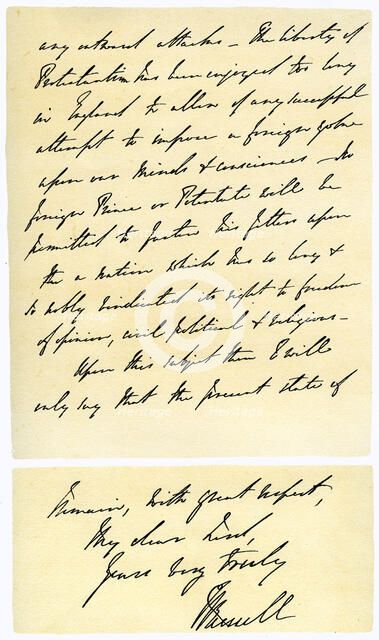 any outward attacks – The liberty of
Protestantism has been enjoyed too long
in England to allow of any successful
attempt to impose a foreign yoke
upon our minds & consciences – No
foreign Prince or Potentate will be
permitted to fasten his fetters upon
the a nation which has so long &
so nobly vindicated its right to freedom
of opinion, civil political & religious –
Upon this subject then I will
only say that the present state of
Remain, with great respect,
My dear Lord,
Yours very truly
J Russell
Heritage